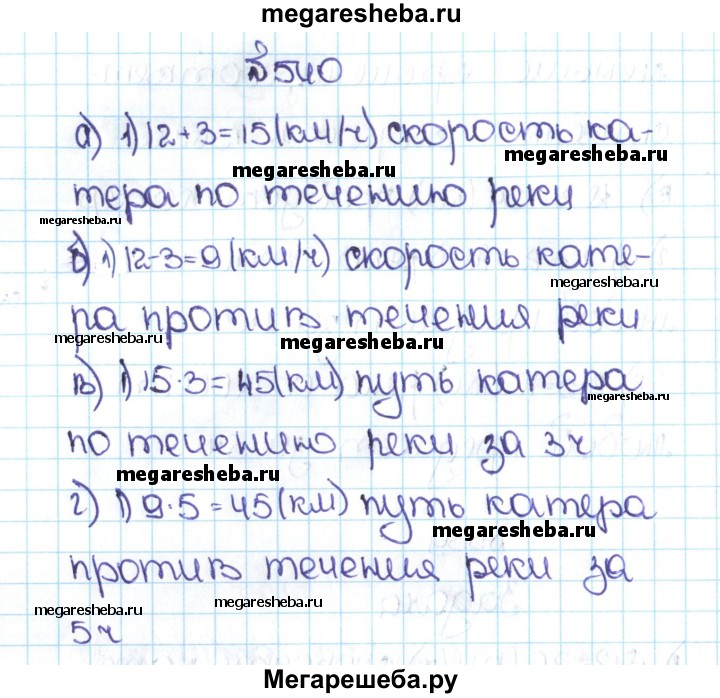 megaresheba.ru
№540
а) 1) 12+3=15(км/ч) скорость ка-
megaresheba.ru megaresheba.ru
тера по течению реки
megaresheba.ru
б) 1) 12-3=9(км/ч) скорость кате-
megaresheba.ru
ра против течения реки
megaresheba.ru megaresheba.ru
в) 1) 15·3=45(км) путь катера
megaresheba.ru
по течению реки за 3ч
megaresheba.ru
г) 1) 9·5=45(км) путь катера
megaresheba.ru
против течения реки за
megaresheba.ru megaresheba.ru
5ч
Мегарешеба.ру